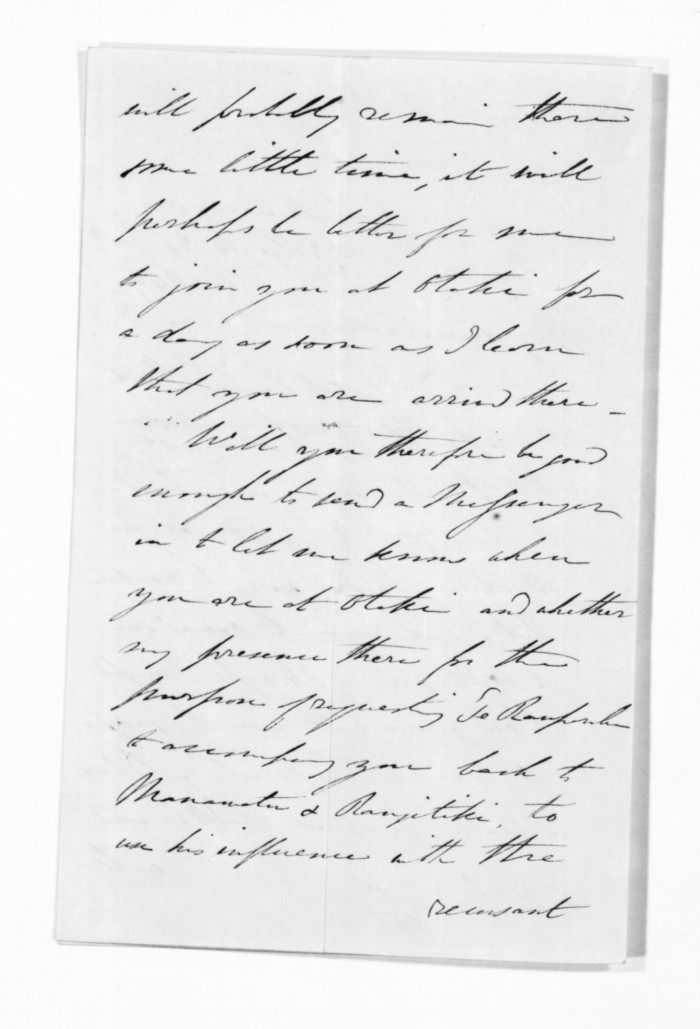 will probably remain there
some little time, it will
perhaps be better for me
to join you at Otaki for
a day as soon as I learn
that you are arrived there -
Will you therefore be good
enough to send a Messenger
in to let me know when
you are at Otaki and whether
my presence there for the
purpose of requesting Te Rauparaha
to accompany you back to
Manawatu & Rangitiki, to
use his influence with the
recusant